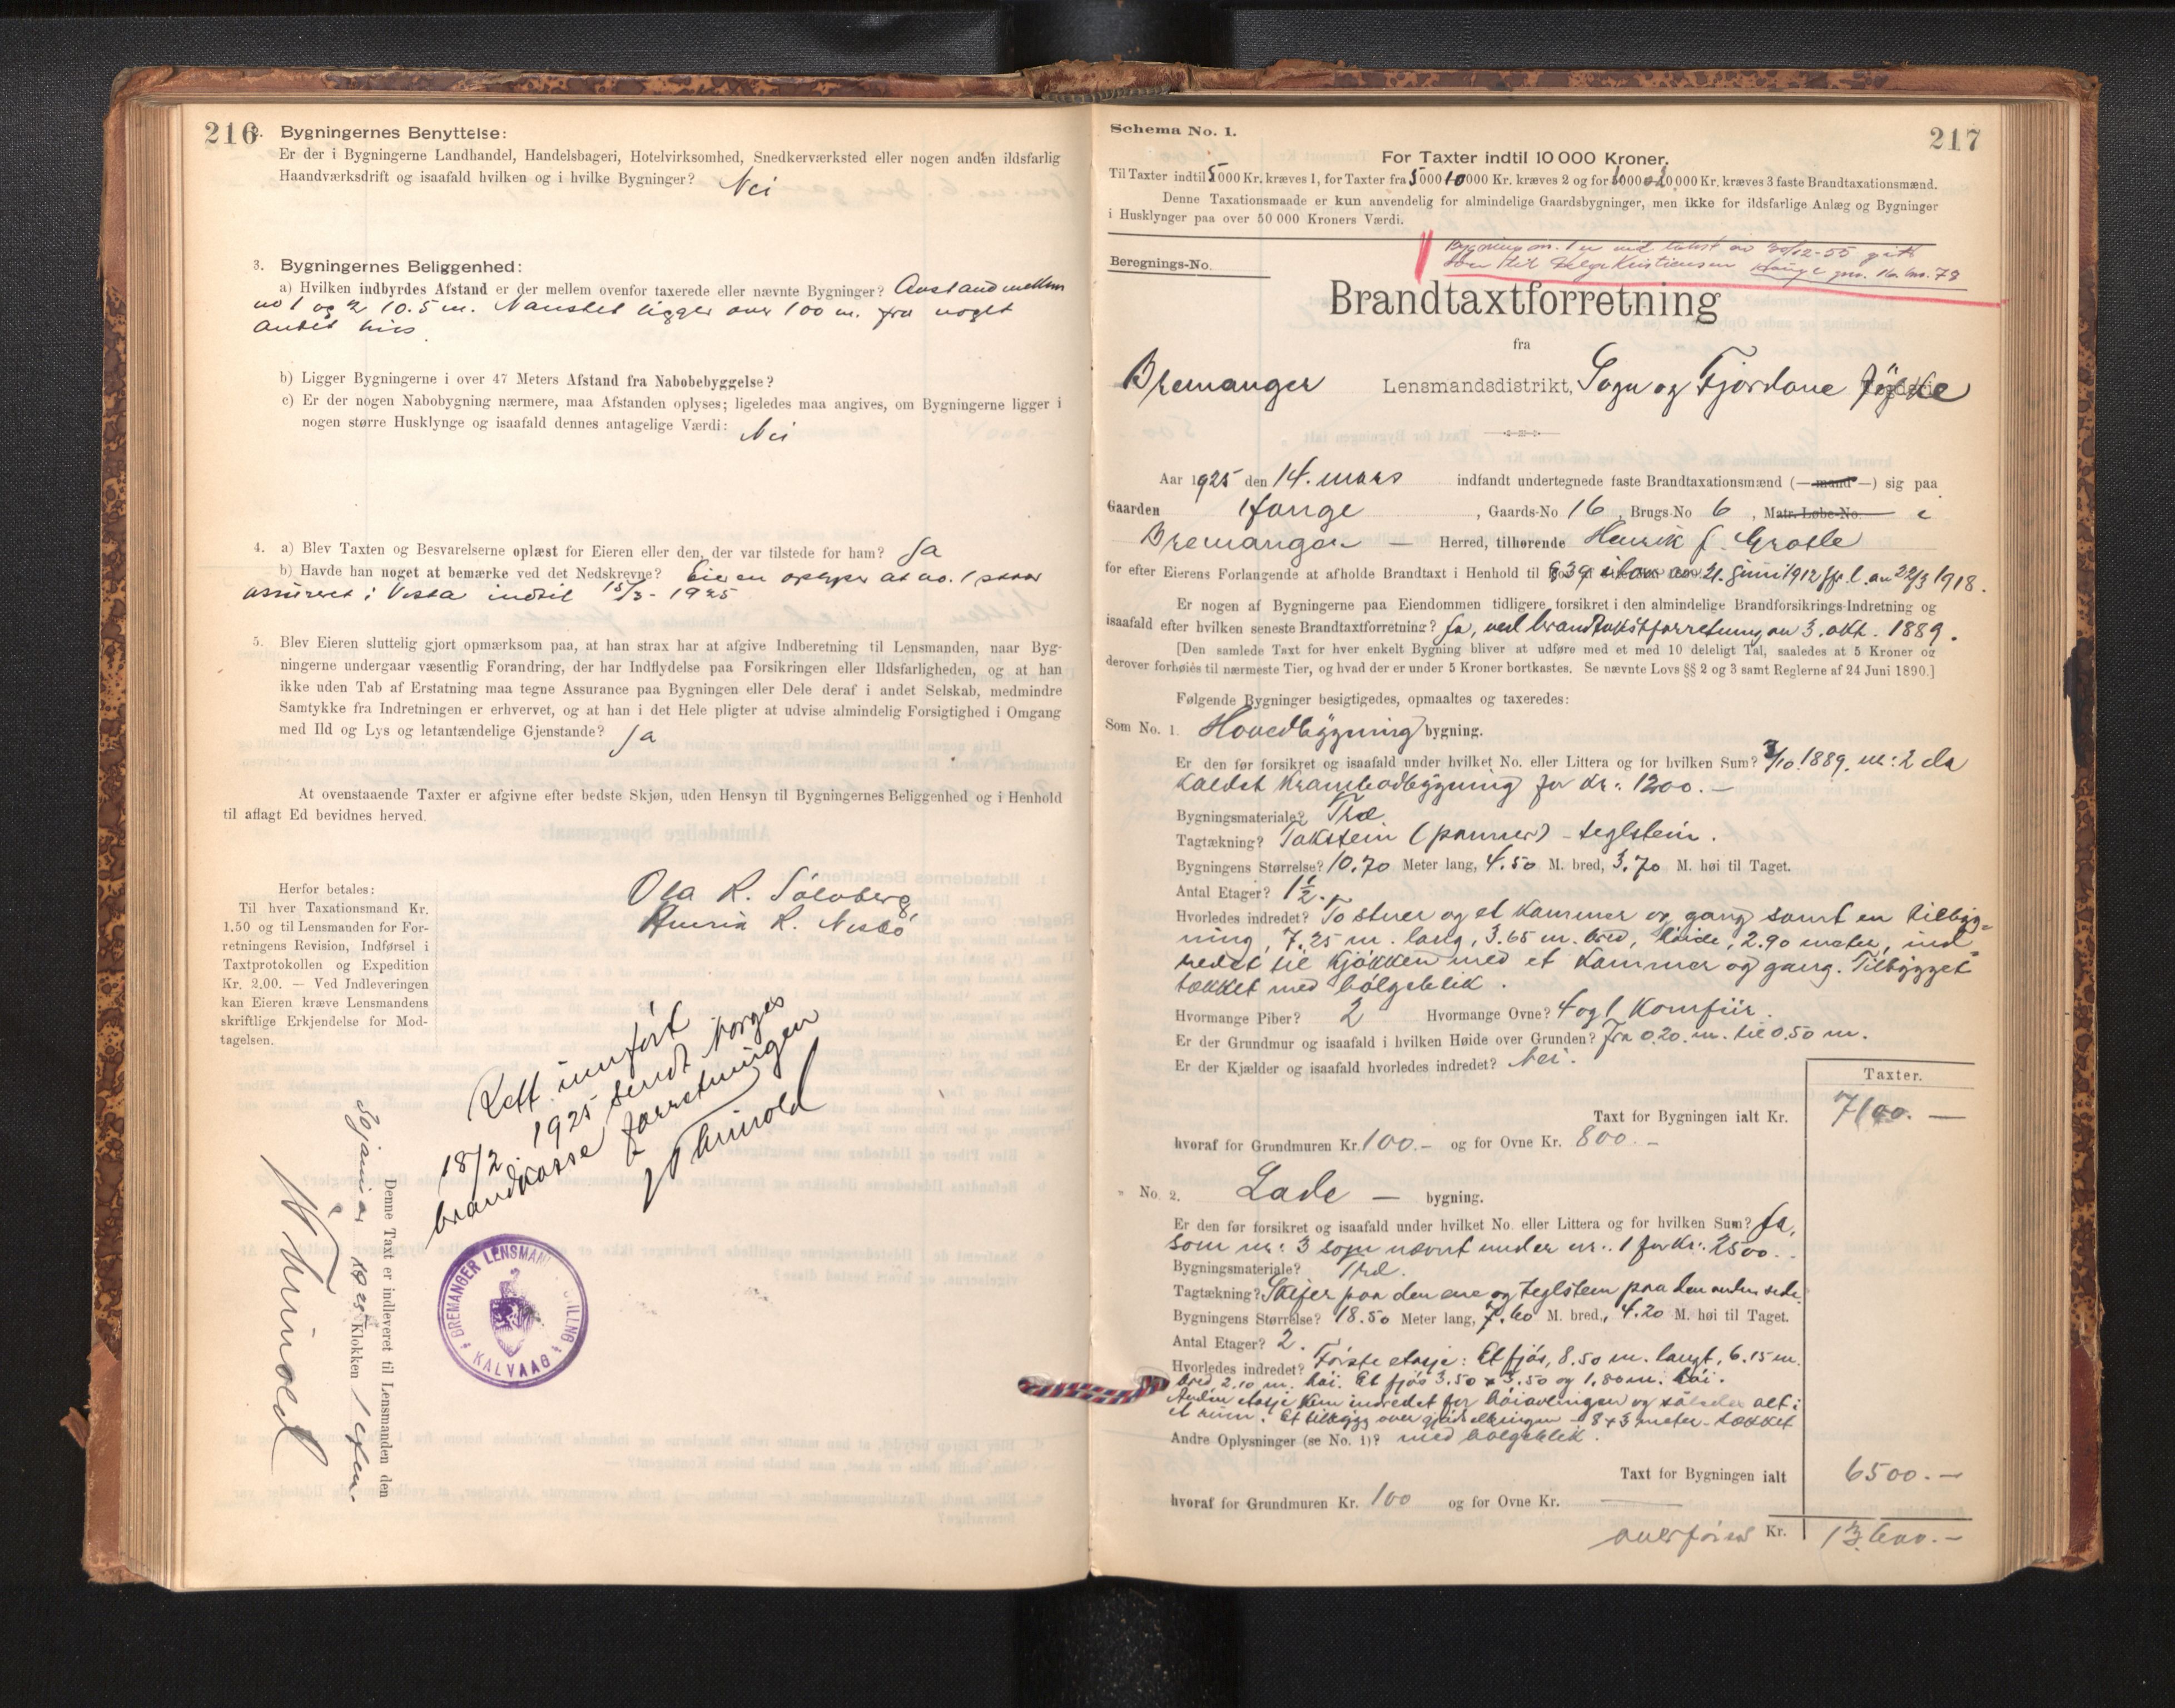 216
2. Bygningernes Benyttelse:
Er der i Bygningerne Landhandel, Handelsbageri, Hotelvirksomhed, Snedkerværksted eller nogen anden ildsfarlig
Haandværksdrift og isaafald hvilken og i hvilke Bygninger? Nei
3. Bygningernes Beliggenhed:
a) Hvilken indbyrdes Afstand er der mellem ovenfor taxerede eller nævnte Bygninger? Avstand mellem
no 1 og 2 10.5 m. Naustet ligger over 100 m. fra noget
andet hus.
b) Ligger Bygningerne i over 47 Meters Afstand fra Nabobebyggelse?
c) Er der nogen Nabobygning nærmere, maa Afstanden oplyses; ligeledes maa angives, om Bygningerne ligger i
nogen større Husklynge og isaafald dennes antagelige Værdi: Nei
4. a) Blev Taxten og Besvarelserne oplæst for Eieren eller den, der var tilstede for ham? Ja
b) Havde han noget at bemærke ved det Nedskrevne? Eieren oplyser at no. 1 staar
assureret i Vesta indtil 15/3 - 1925
5. Blev Eieren sluttelig gjort opmærksom paa, at han strax har at afgive Indberetning til Lensmanden, naar Byg-
ningerne undergaar væsentlig Forandring, der har Indflydelse paa Forsikringen eller Ildsfarligheden, og at han
ikke uden Tab af Erstatning maa tegne Assurance paa Bygningen eller Dele deraf i andet Selskab, medmindre
Samtykke fra Indretningen er erhvervet, og at han i det Hele pligter at udvise almindelig Forsigtighed i Omgang
med Ild og Lys og letantændelige Gjenstande? Ja
At ovenstaaende Taxter er afgivne efter bedste Skjøn, uden Hensyn til Bygningernes Beliggenhed og i Henhold
til aflagt Ed bevidnes herved.
Ola R. Sölvberg,
R. Nesbö
Herfor betales:
Til hver Taxationsmand Kr.
1.50 og til Lensmanden for For-
retningens Revision, Indførsel i
Taxtprotokollen og Expedition
Kr. 2.00. — Ved Indleveringen
kan Eieren kræve Lensmandens
skriftlige Erkjendelse for Mod-
tagelsen.
Rett innført
18/2 1925 sendt Norges
brandkasse forretningen
Denne Taxt er indleveret til Lensmanden den
1925 Klokken 1 efter.
BREMANGER LENSMANDSBESTILLING
KALVAAG
Schema No. 1.
217
For Taxter indtil 10 000 Kroner.
Til Taxter indtil 5000 Kr. kræves 1, for Taxter fra 5000 10000 Kr. kræves 2 og for 0000 Kr. kræves 3 faste Brandtaxationsmænd.
Denne Taxationsmaade er kun anvendelig for almindelige Gaardsbygninger, men ikke for ildsfarlige Anlæg og Bygninger
i Husklynger paa over 50 000 Kroners Værdi.
Bygning nr. 1 er ved takst av 30/12-55 gått
over til Helge Kristiansen Hauge gnr. 16 bnr. 78
Beregnings-No.
Brandtaxtforretning
fra
Bremanger Lensmandsdistrikt, Sogn og Fjordane fylke
Aar 1925 den 14. mars indfandt undertegnede faste Brandtaxationsmænd (— mand —) sig paa
Gaarden Hauge, Gaards-No 16, Brugs-No 6, Matr. Løbe-No. i
Bremanger — Herred, tilhørende Henrik J. Grotle
for efter Eierens Forlangende at afholde Brandtaxt i Henhold til § 39 i lov av 21. juni 1912 jfr. l. av 22/3 1918.
Er nogen af Bygningerne paa Eiendommen tidligere forsikret i den almindelige Brandforsikrings-Indretning og
isaafald efter hvilken seneste Brandtaxtforretning? Ja, ved brandtakstforretning av 3. okt. 1889.
[Den samlede Taxt for hver enkelt Bygning bliver at udføre med et med 10 deleligt Tal, saaledes at 5 Kroner og
derover forhøies til nærmeste Tier, og hvad der er under 5 Kroner bortkastes. Se nævnte Lovs §§ 2 og 3 samt Reglerne af 24 Juni 1890.]
Følgende Bygninger besigtigedes, opmaaltes og taxeredes:
Som No. 1. Hovedbygning bygning.
Er den før forsikret og isaafald under hvilket No. eller Littera og for hvilken Sum? 3/10.1889. nr: 2 da
kaldet Krambodbygning for kr: 1200.—
Bygningsmateriale? Træ
Tagtækning? Takstein (panner) - teglstein.
Bygningens Størrelse? 10.70 Meter lang, 4.50 M. bred, 3.70 M. høi til Taget.
Antal Etager? 1½.
Hvorledes indredet? To stuer og et kammer og gang samt en tilbyg-
ning, 7.25 m. lang, 3.65 m. bred, høide, 2.90 meter, ind-
redet til kjøkken med et kammer og gang. Tilbygget
tækket med bølgeblik.
Hvormange Piber? 2 Hvormange Ovne? 4 og 1 komfür.
Er der Grundmur og isaafald i hvilken Høide over Grunden? Fra 0.20. m. til 0.50 m.
Er der Kjælder og isaafald hvorledes indredet? Nei.
Taxter.
Taxt for Bygningen ialt Kr. 7100.—
hvoraf for Grundmuren Kr. 100.— og for Ovne Kr. 800.—
No. 2. Lade — bygning.
Er den før forsikret og isaafald under hvilket No. eller Littera og for hvilken Sum? Ja,
som nr: 3 som nævnt under nr. 1 for kr: 2500.
Bygningsmateriale? Træ.
Tagtækning? Skifer paa den ene og teglstein paa den anden side.
Bygningens Størrelse? 18.50 Meter lang, 7.60 M. bred, 4.20 M. høi til Taget.
Antal Etager? 2.
Hvorledes indredet? Første etasje: Et fjøs, 8.50 m. langt, 6.15 m.
bred 2.10 m. høi. Et fjøs 3.50 x 3.50 og 1.80 m. høi.
Anden etasje kun indredet for høiavlingen og således alt i
et rum. Et tilbygg over - 8 x 3 meter - tækket
Andre Oplysninger (se No. 1)? med bølgeblik.
Taxt for Bygningen ialt 6500.—
hvoraf for Grundmuren Kr. 100 og for Ovne Kr. —
overføres Kr. 13.600.—